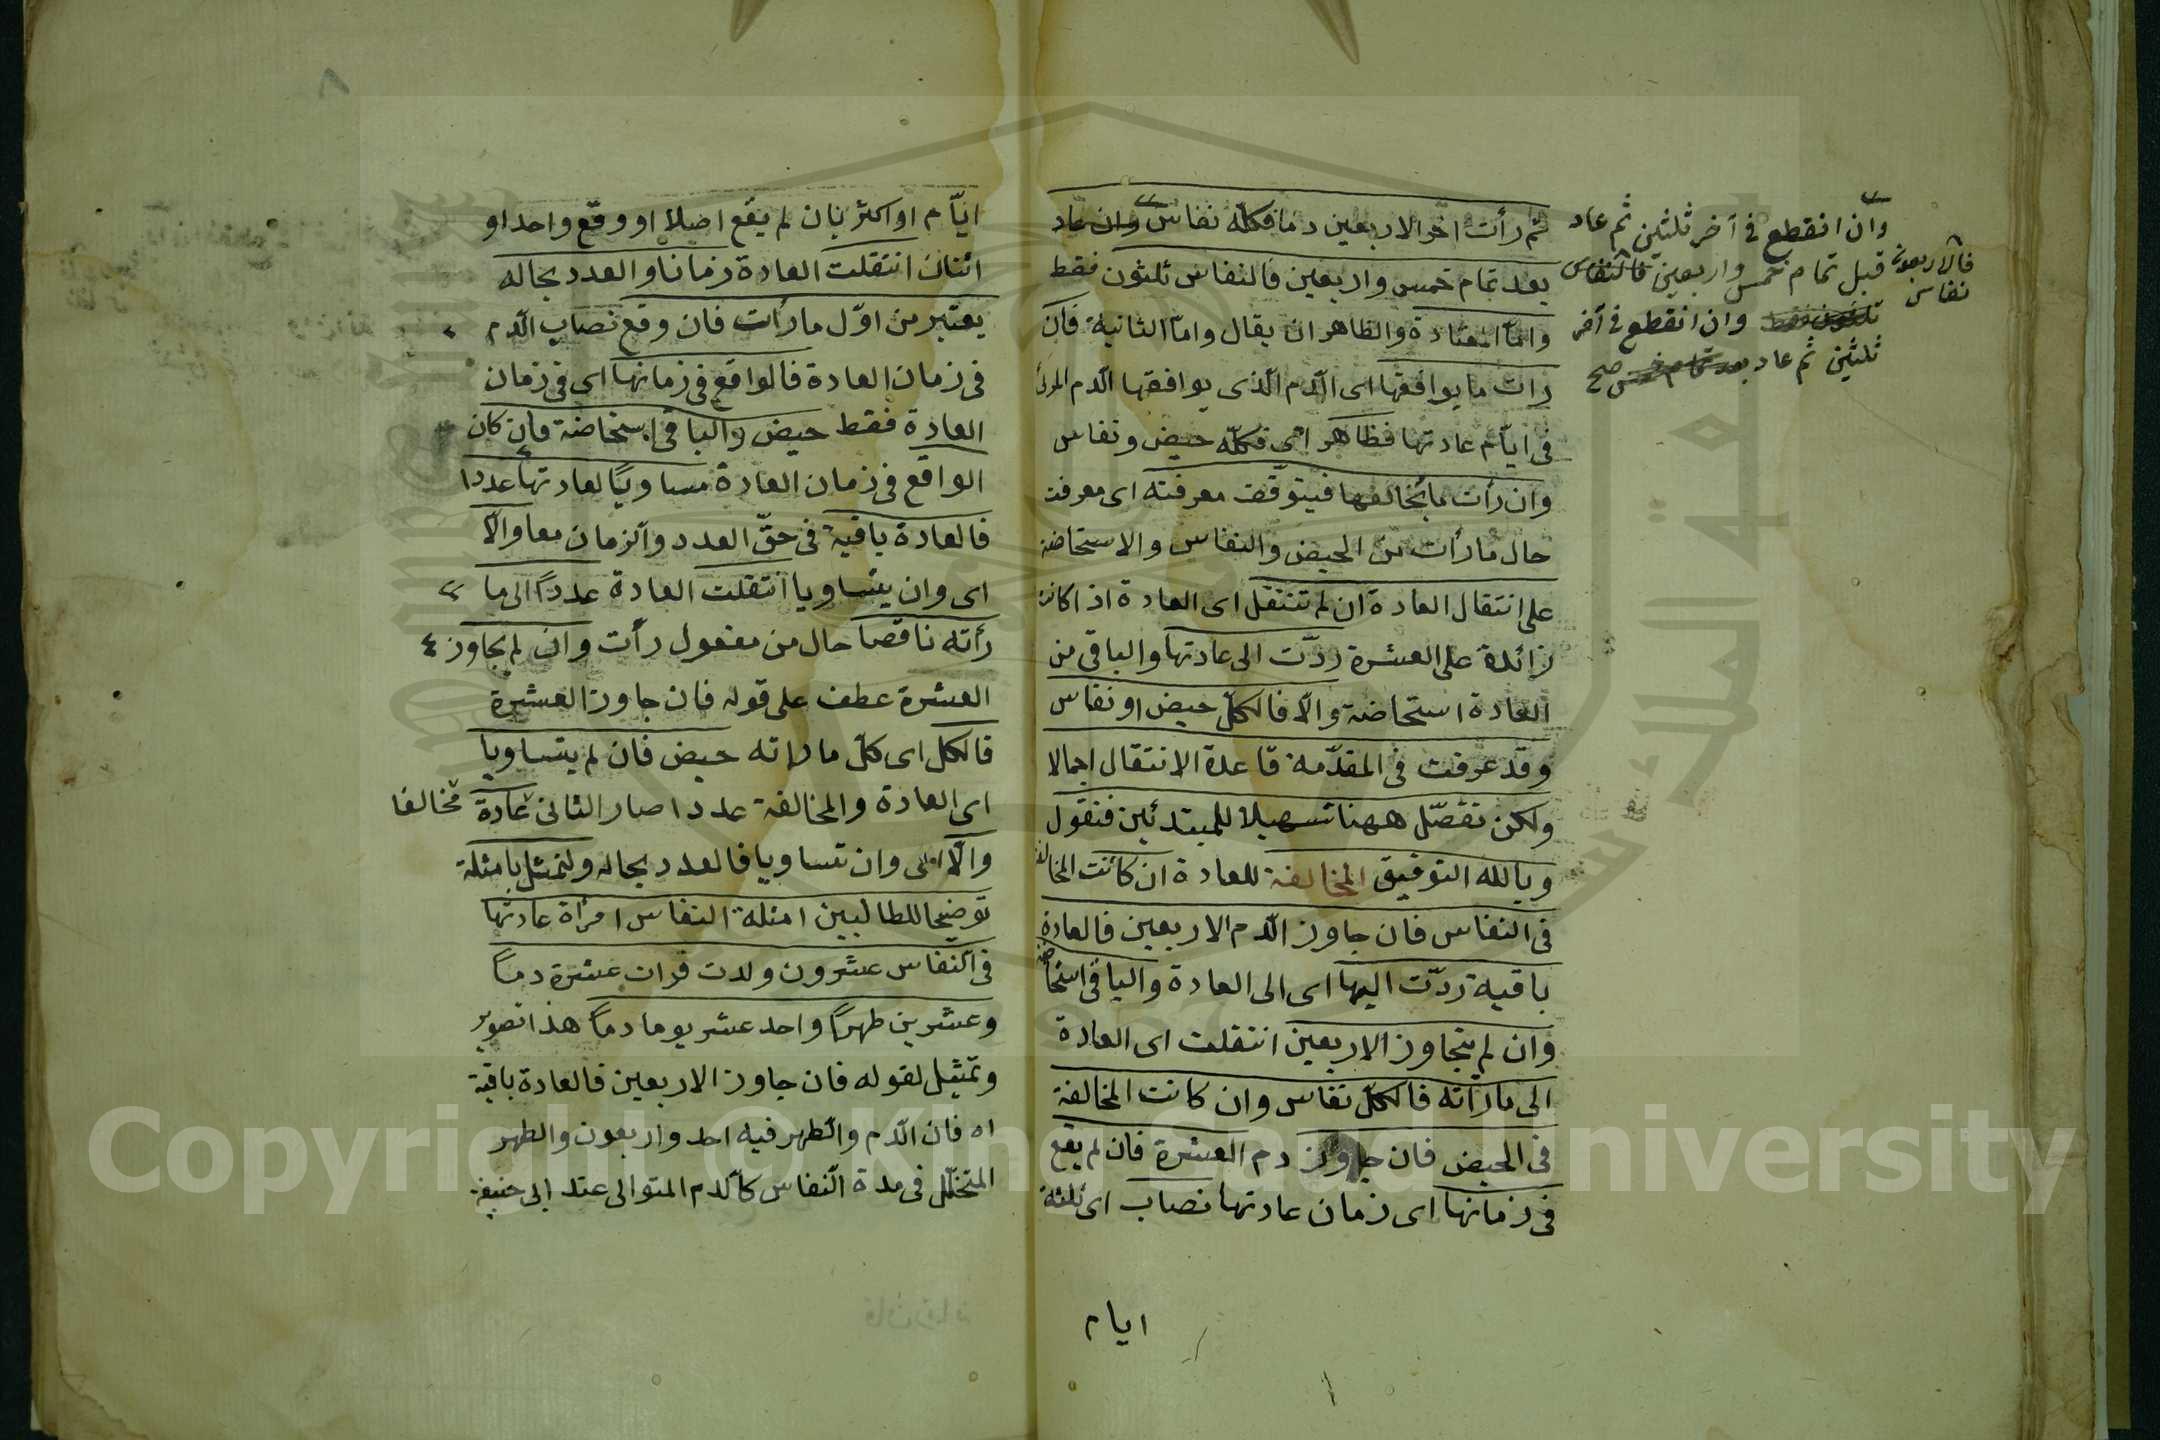 ثم رأت آخر الاربعين دما فكله نفاس وان عاد
بعد تمام خمس واربعين فالنفاس ثلثون فقط
واما المعتادة والظاهر ان يقال واما الثانية فان
رات ما يوافقها اى الدم الذى يوافقها الدم المرئى
فى ايام عادتها فظاهر اى فكله حيض ونفاس
وان رأت ما يخالفها فيتوقف معرفته اى معرفة
حال ما رأت من الحيض والنفاس والاستحاضة
على انتقال العادة ان لم تنتقل اى العادة اذا كانت
زائدة على العشرة ردّت الى عادتها والباقى من
العادة استحاضة والّا فالكل حيض او نفاس
وقد عرفت فى المقدّمة قاعدة الانتقال اجمالا
ولكن نفصّل ههنا تسهيلا للمبتدئين فنقول
وبالله التوفيق المخالفة للعادة ان كانت المخالفة
فى النفاس فان جاوز الدّم الاربعين فالعادة
باقية ردّت اليها اى الى العادة والباقى استحاضة
وان لم يتجاوز الاربعين انتقلت اى العادة
الى ما رأته فالكلّ نفاس وان كانت المخالفة
فى الحيض فان جاوز دم العشرة فان لم يقع
فى زمانها اى زمان عادتها نصاب اى ثلثة
ايام
وان انقطع فى آخر ثلثين ثم عاد
قبل تمام خمس واربعين فالنفاس
فالاربعون
نفاس
ثلثون فقط وان انقطع فى آخر
ثلثين ثم عاد بعد تمام خمس صح
٨
ايّام او اكثر بان لم يقع اصلا او وقع واحد او
اثنان انتقلت العادة زمانا والعدد بحاله
يعتبر من اوّل ما رأت فان وقع نصاب الدّم
فى زمان العادة فالواقع فى زمانها اى فى زمان
العادة فقط حيض والباقى استحاضة فان كان
الواقع فى زمان العادة مساويًا لعادتها عددا
فالعادة باقية فى حقّ العدد والزمان معا والّا
اى وان يتساويا انتقلت العادة عددًا الى ما
رأته ناقصا حال من مفعول رأت وان لم يجاوز ٤
العشرة عطف على قوله فان جاوز العشرة
فالكل اى كلّ ما راته حيض فان لم يتساويا
اى العادة والمخالفة عددا صار الثانى عادة مخالفا
والّا اى وان تساويا فالعدد بحاله ولنمثل بامثلة
توضيحا للطالبين امثلة النفاس امرأة عادتها
فى النفاس عشرون ولدت فرات عشرة دمًا
وعشرين طهرًا واحد عشر يوما دمًا هذا تصوير
وتمثيل لقوله فان جاوز الاربعين فالعادة باقية
اه فان الدّم والطهر فيه احد واربعون والطهر
المتخلّل فى مدة النّفاس كالّدم المتوالى عند ابى حنيفة
Copyright © King Saud University